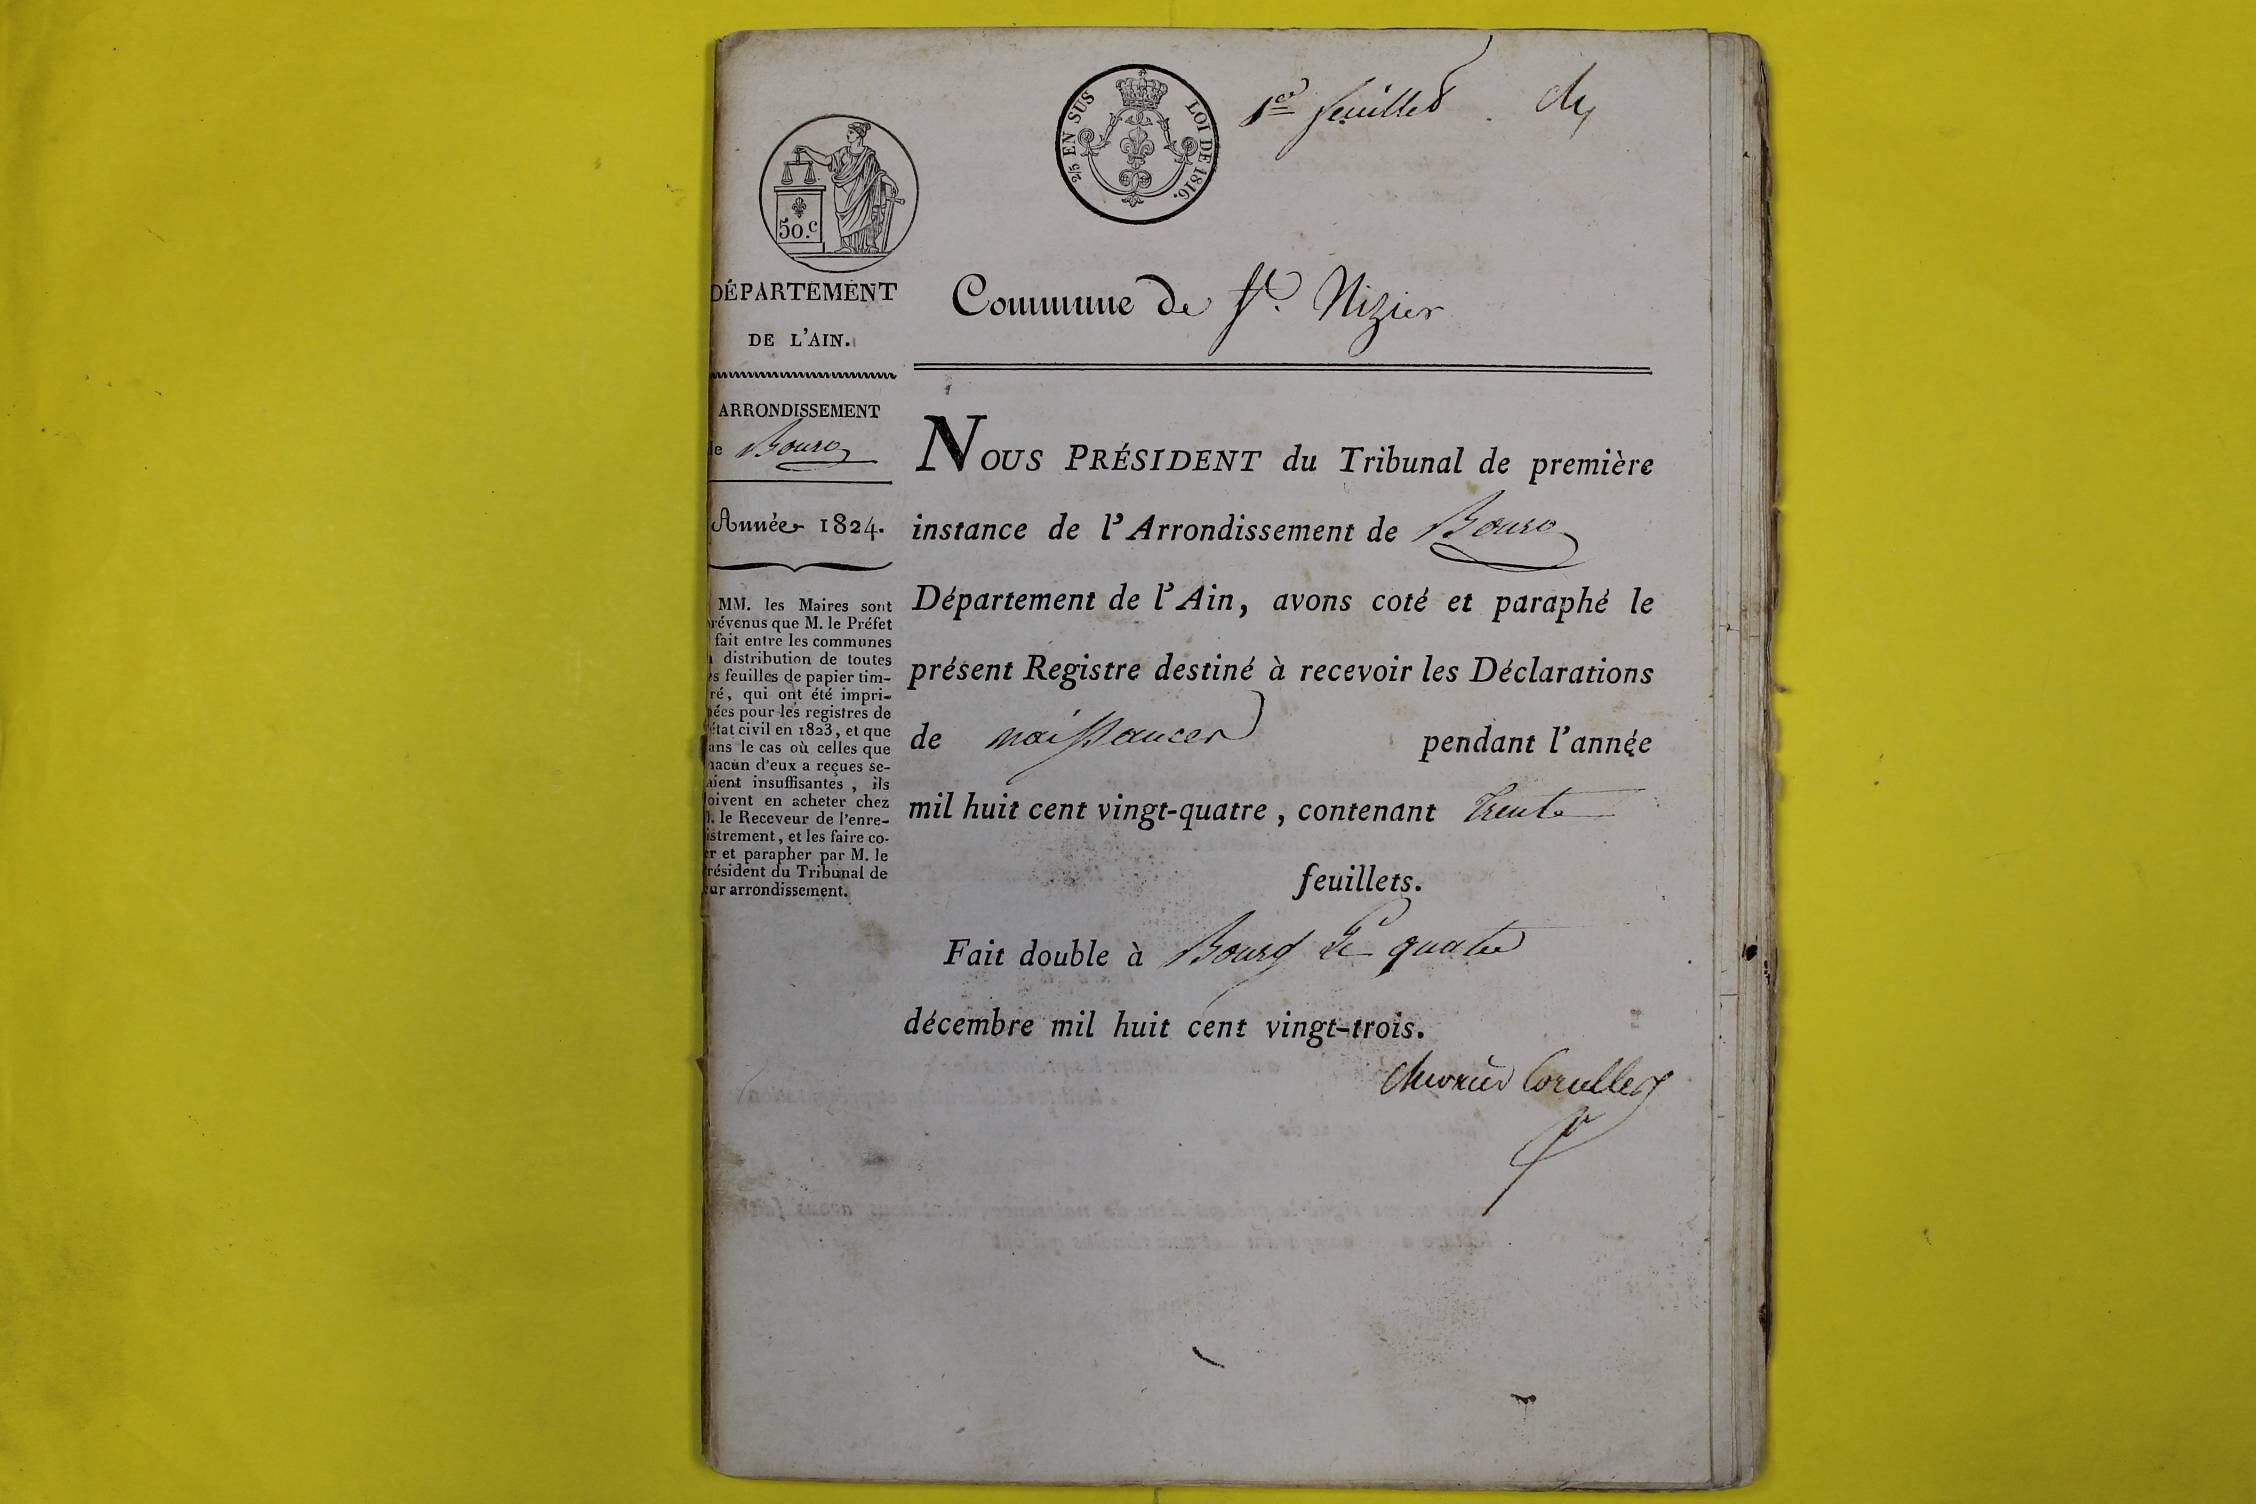 1er feuillet.
2/5 EN SUS LOI DE 1816.
50.c
DÉPARTEMENT
DE L'AIN.
Commune de St. Nizier
ARRONDISSEMENT
de Bourg
Année 1824.
MM. les Maires sont
révenus que M. le Préfet
fait entre les communes
distribution de toutes
s feuilles de papier tim-
ré, qui ont été impri-
ées pour les registres de
état civil en 1823, et que
ans le cas où celles que
hacun d'eux a reçues se-
aient insuffisantes, ils
oivent en acheter chez
M. le Receveur de l'enre-
istrement, et les faire co-
er et parapher par M. le
résident du Tribunal de
eur arrondissement.
NOUS PRÉSIDENT du Tribunal de première
instance de l'Arrondissement de Bourg
Département de l'Ain, avons coté et paraphé le
présent Registre destiné à recevoir les Déclarations
de naissances pendant l'année
mil huit cent vingt-quatre, contenant Trente
feuillets.
Fait double à Bourg Le quatre
décembre mil huit cent vingt-trois.